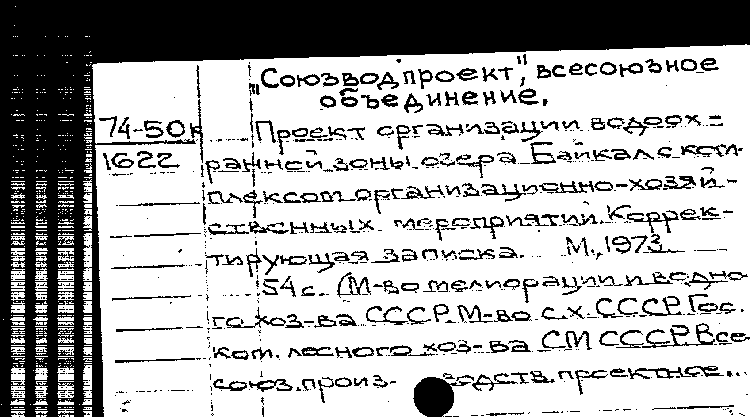 "Союзводпроект", всесоюзное
объединение.
74-50к
1622
Проект организации водоох-
ранной зоны озера Байкал с ком-
плексом организационно-хозяй-
ственных мероприятий. Коррек-
тирующая записка. М., 1973.
54 с. (М-во мелиорации и водно-
го хоз-ва СССР. М-во с.х. СССР. Гос.
ком. лесного хоз-ва СМ СССР. Все-
союз. произ- водств. проектное...